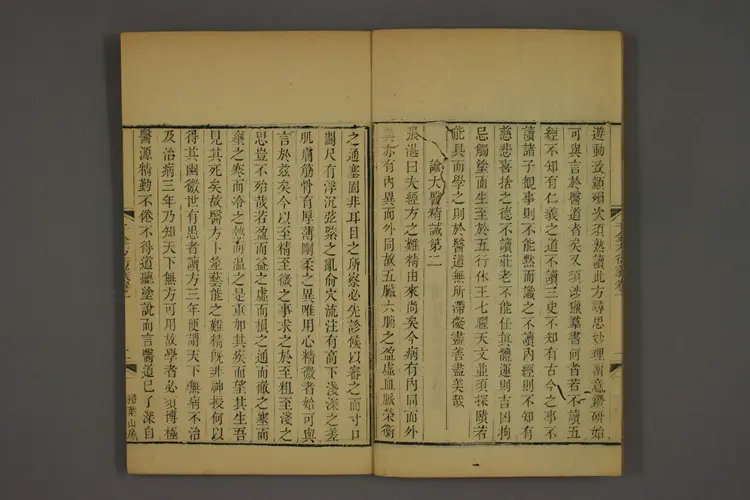 遊動致顛殞次須熟讀此方尋思妙理留意鑽研始
可與言於醫道者矣又須涉獵羣書何者若不讀五
經不知有仁義之道不讀三史不知有古今之事不
讀諸子覩事則不能默而識之不讀內經則不知有
慈悲喜捨之德不讀莊老不能任真體運則吉凶拘
忌觸塗而生至於五行休王七耀天文並須探賾若
能具而學之則於醫道無所滯礙盡善盡美哉
論大醫精誠第二
張湛曰夫經方之難精由來尚矣今病有內同而外
異亦有內異而外同故五臟六腑之盈虛血脈榮衞
之通塞固非耳目之所察必先診候以審之而寸口
關尺有浮沉弦緊之亂俞穴流注有高下淺深之差
肌膚筋骨有厚薄剛柔之異唯用心精微者始可與
言於茲矣今以至精至微之事求之於至粗至淺之
思豈不殆哉若盈而益之虛而損之通而徹之塞而
壅之寒而冷之熱而溫之是重加其疾而望其生吾
見其死矣故醫方卜筮藝能之難精旣非神授何以
得其幽微世有愚者讀方三年便謂天下無病不治
及治病三年乃知天下無方可用故學者必須博極
醫源精勤不倦不得道聽塗說而言醫道已了深自
掃葉山房